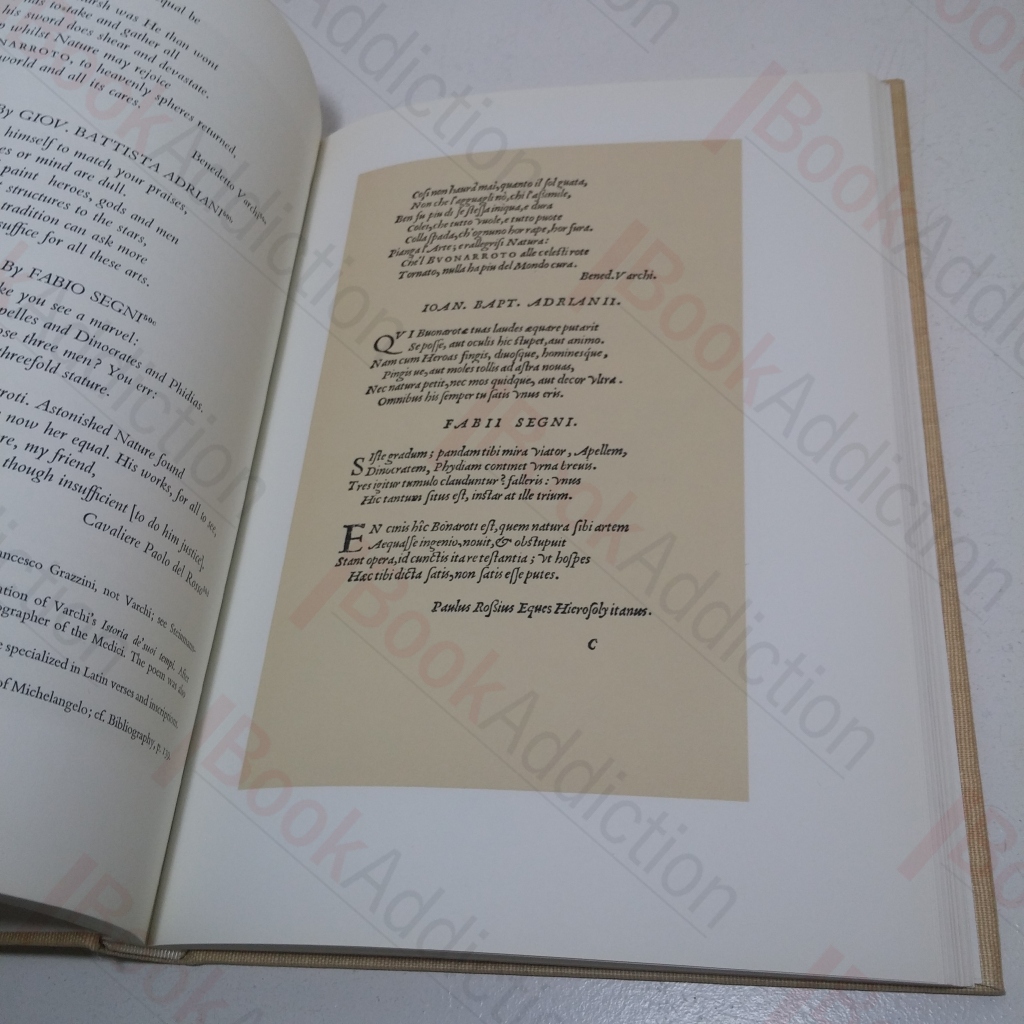 qual be
rsh was He than wont
has to stake and gather all
his sword does shear and devastate.
whilst Nature may rejoice
NARROTO, to heavenly spheres returned,
world and all its cares.
Benedetto Varchi
By GIOV. BATTISTA ADRIANI
himself to match your praises,
es or mind are dull.
paint heroes, gods and men
structures to the stars,
tradition can ask more
suffice for all these arts.
By FABIO SEGNI
ke you see a marvel:
pelles and Dinocrates and Phidias.
ose three men? You err:
threefold stature.
rroti. Astonished Nature found
now her equal. His works, for all to see,
re, my friend,
though insufficient [to do him justice],
Cavaliere Paolo del Rosso
ancesco Grazzini, not Varchi; see
ntion of Varchi's Istoria de'suoi tempi. After
ographer of the Medici. The poem was also
e specialized in Latin verses and inscriptions.
of Michelangelo; cf. Bibliography, p. 159.
Cosi non haurà mai, quanto il sol guata,
Non che l'agguagli nò, chi l'assimile,
Ben fu piu di se stessa iniqua, e dura
Colei, che tutto vuole, e tutto puote
Colla spada, ch'ognuno hor rape, hor fura.
Pianga l'Arte; e rallegrisi Natura:
Che'l BVONARROTO alle celesti rote
Tornato, nulla ha piu del Mondo cura.
Bened. Varchi.
IOAN. BAPT. ADRIANII.
QVI Buonarotæ tuas laudes æquare putarit
Se posse, aut oculis hic stupet, aut animo.
Nam cum Heroas fingis, diuosque, hominesque,
Pingis ue, aut moles tollis ad astra nouas,
Nec natura petit, nec mos quidque, aut decor vltra.
Omnibus his semper tu satis vnus eris.
FABII SEGNI.
Siste gradum; pandam tibi mira viator, Apellem,
Dinocratem, Phydiam continet vrna breuis.
Tres igitur tumulo clauduntur? falleris: vnus
Hic tantum situs est, instar at ille trium.
EN cinis hîc Bonaroti est, quem natura sibi artem
Aequasse ingenio, nouit, & obstupuit
Stant opera, id cunctis ita re testantia; vt hospes
Hæc tibi dicta satis, non satis esse putes.
Paulus Rossius Eques Hierosolyitanus.
C
BookAddiction